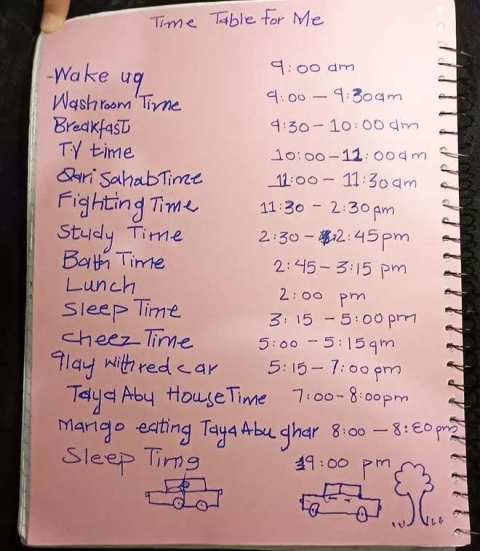 Time Table for Me
-Wake uq 9:00 am
Washroom Time 9:00 – 9:30am
Breakfast 9:30 – 10:00 am
TV time 10:00 – 11:00am
Qari Sahab Time 11:00 – 11:30am
Fighting Time 11:30 – 2:30pm
Study Time 2:30 – 2:45pm
Bath Time 2:45 – 3:15 pm
Lunch 2:00 pm
Sleep Time 3:15 – 5:00pm
Cheez Time 5:00 – 5:15qm
qlay with red car 5:15 – 7:00pm
Taya Abu House Time 7:00 – 8:00pm
Mango eating Taya Abu ghar 8:00 – 8:30pm
Sleep Timg 9:00 pm